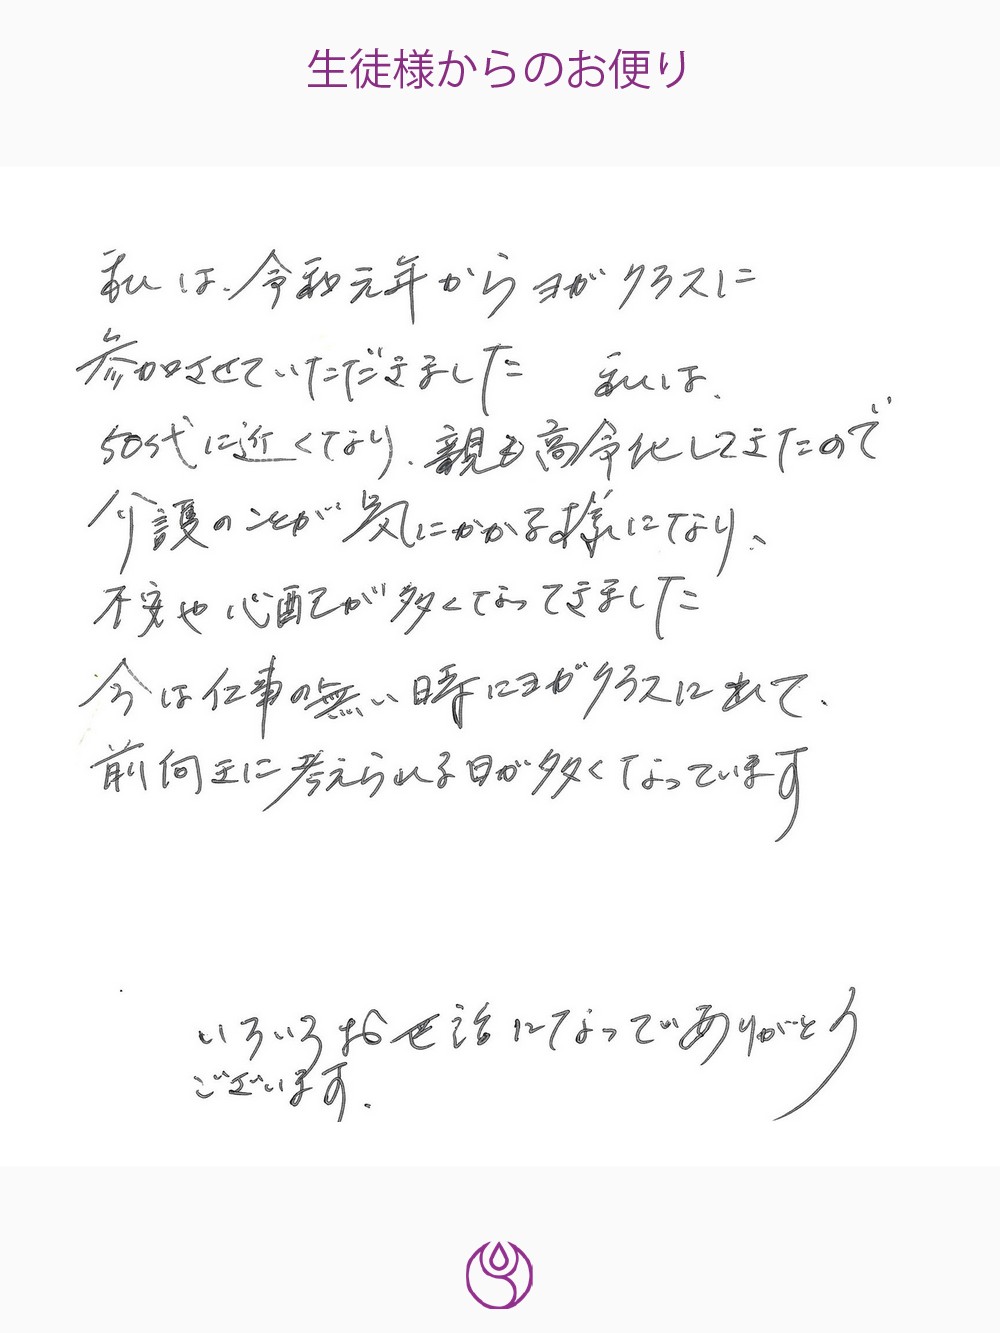 生徒様からのお便り
私は、令和元年からヨガクラスに
参加させていただきました 私は、
50代に近くなり、親も高令化してきたので
介護のことが気にかかる様になり、
不安や心配が多くなってきました
今は仕事の無い時にヨガクラスに出て、
前向きに考えられる日が多くなっています
いろいろお世話になってありがとう
ございます.